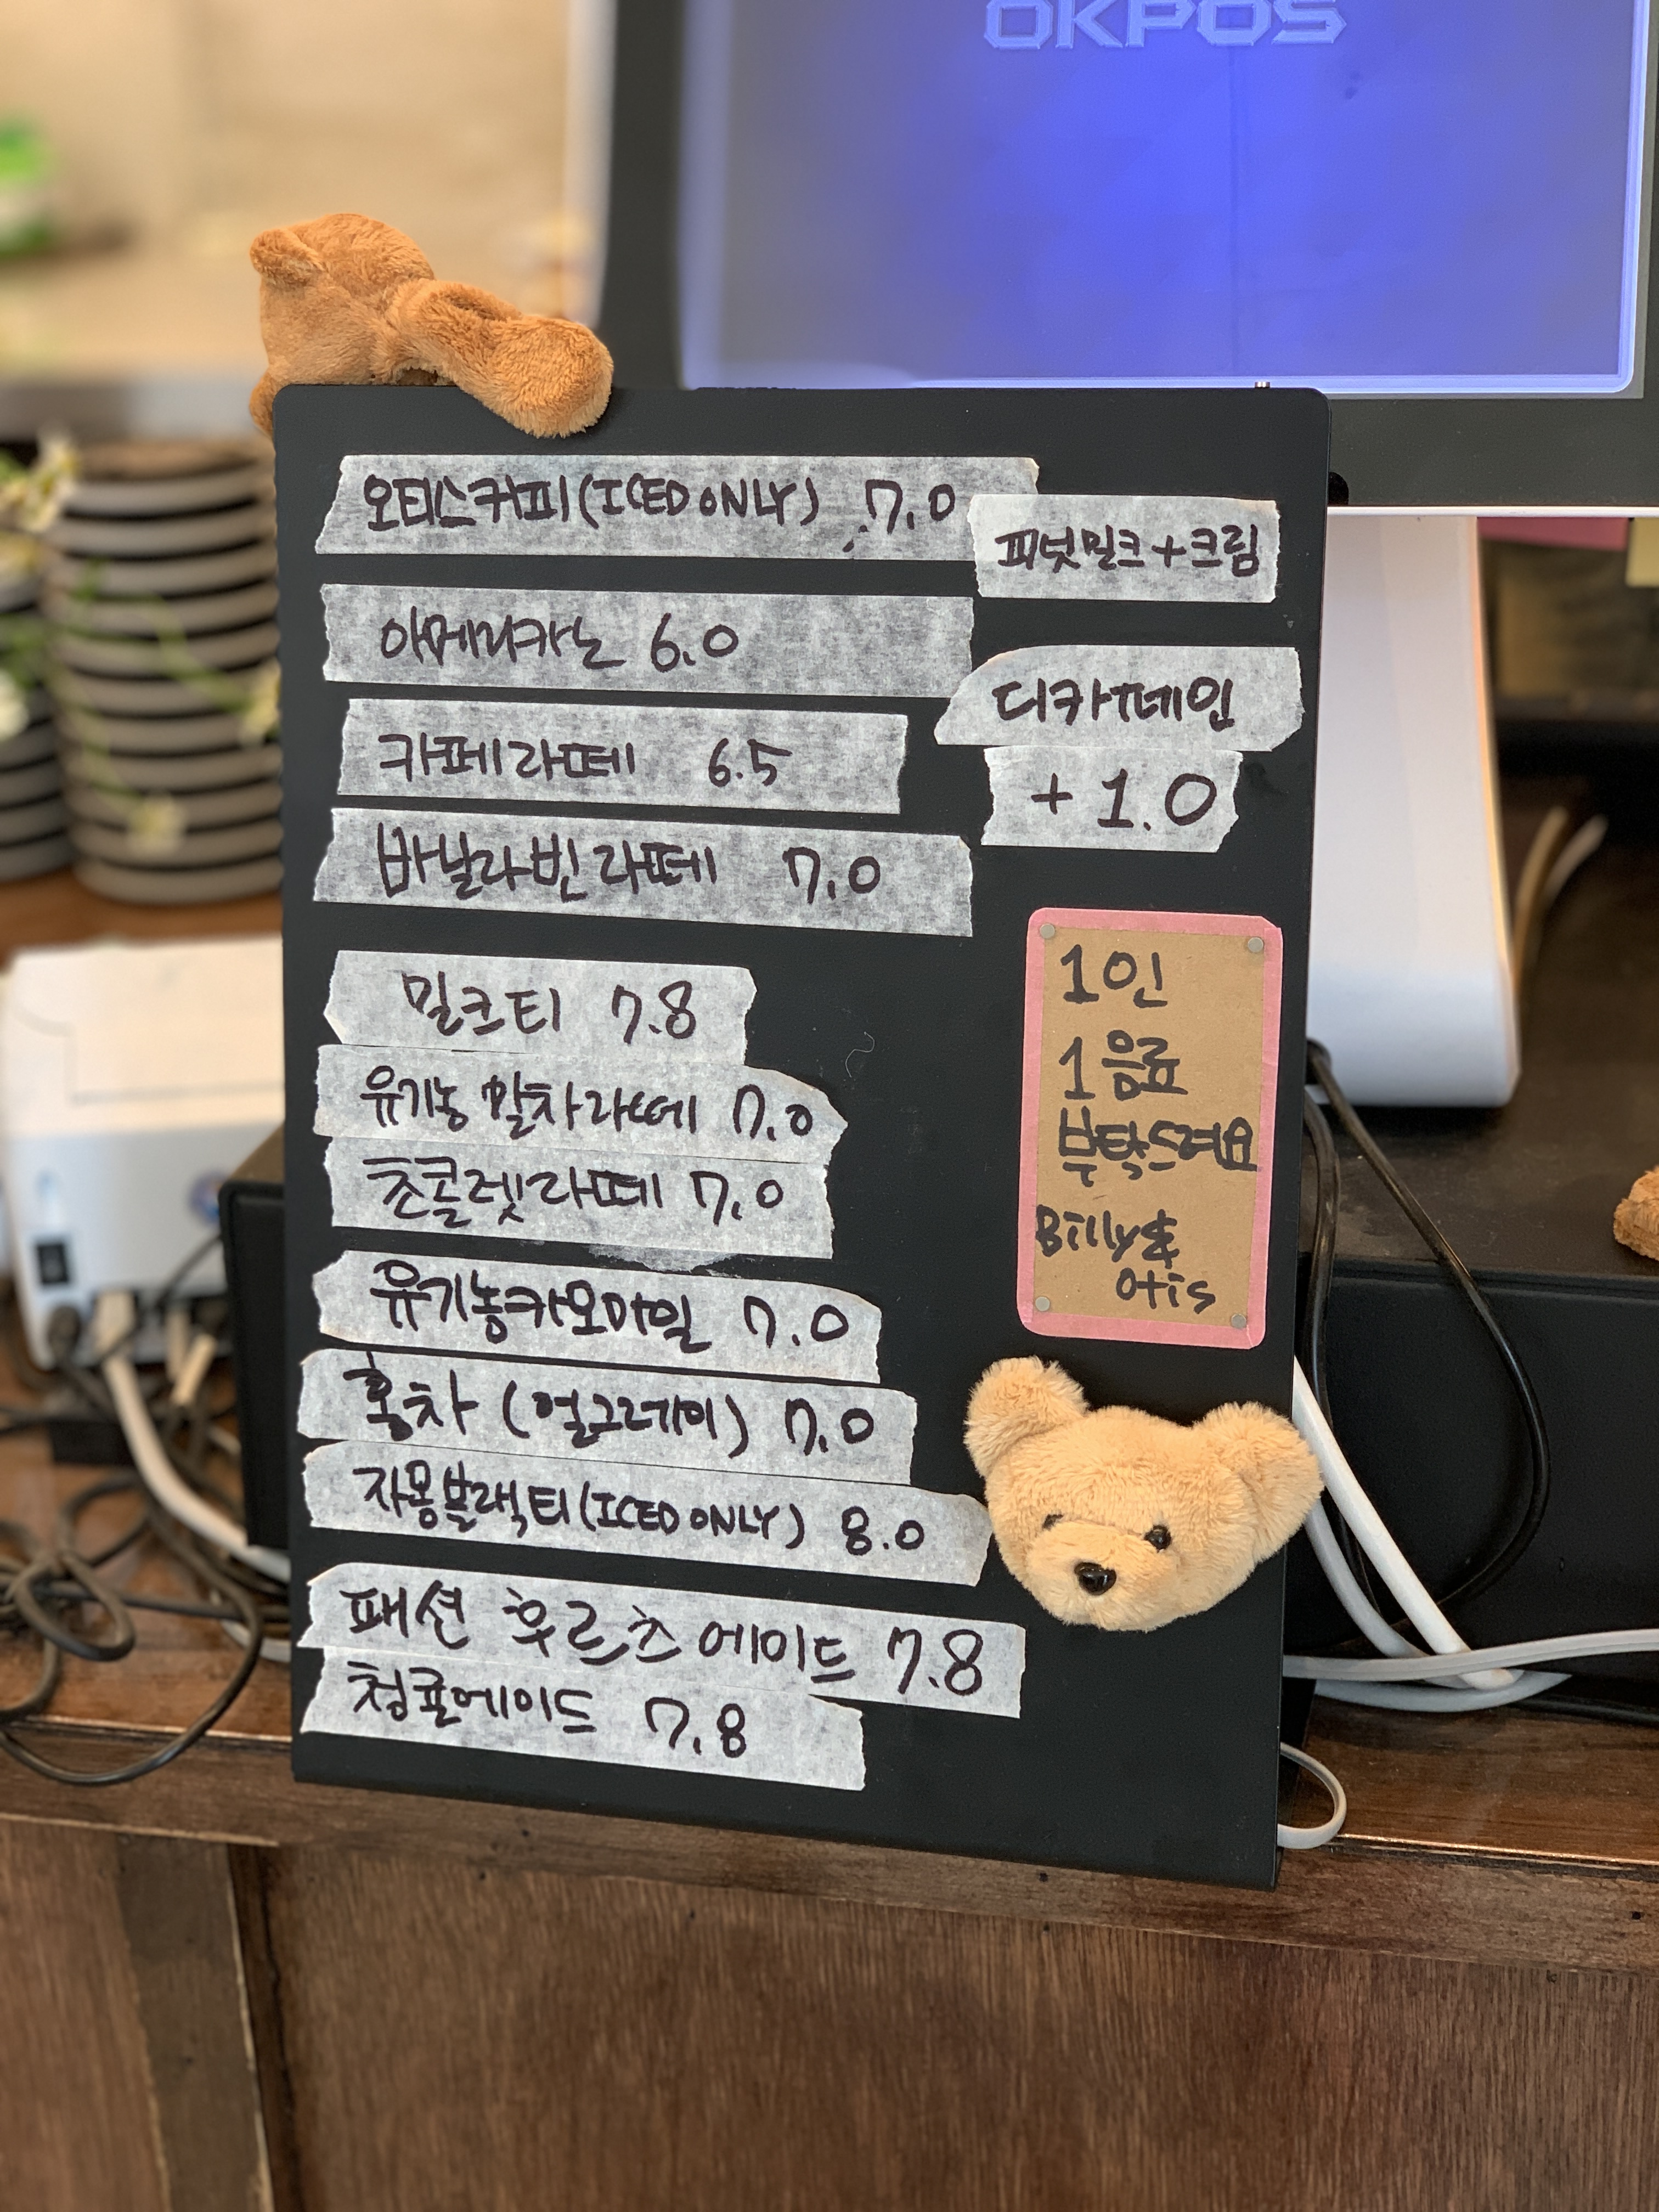 OKPOS
오티스커피(ICED ONLY) 7.0
피넛밀크+크림
아메리카노 6.0
디카페인
+1.0
카페라떼 6.5
바닐라빈라떼 7.0
밀크티 7.8
유기농 말차라떼 7.0
초콜렛라떼 7.0
유기농카모마일 7.0
홍차 (얼그레이) 7.0
자몽블랙티(ICED ONLY) 8.0
패션 후르츠 에이드 7.8
청귤에이드 7.8
1인
1음료
부탁드려요
Billy&
Otis